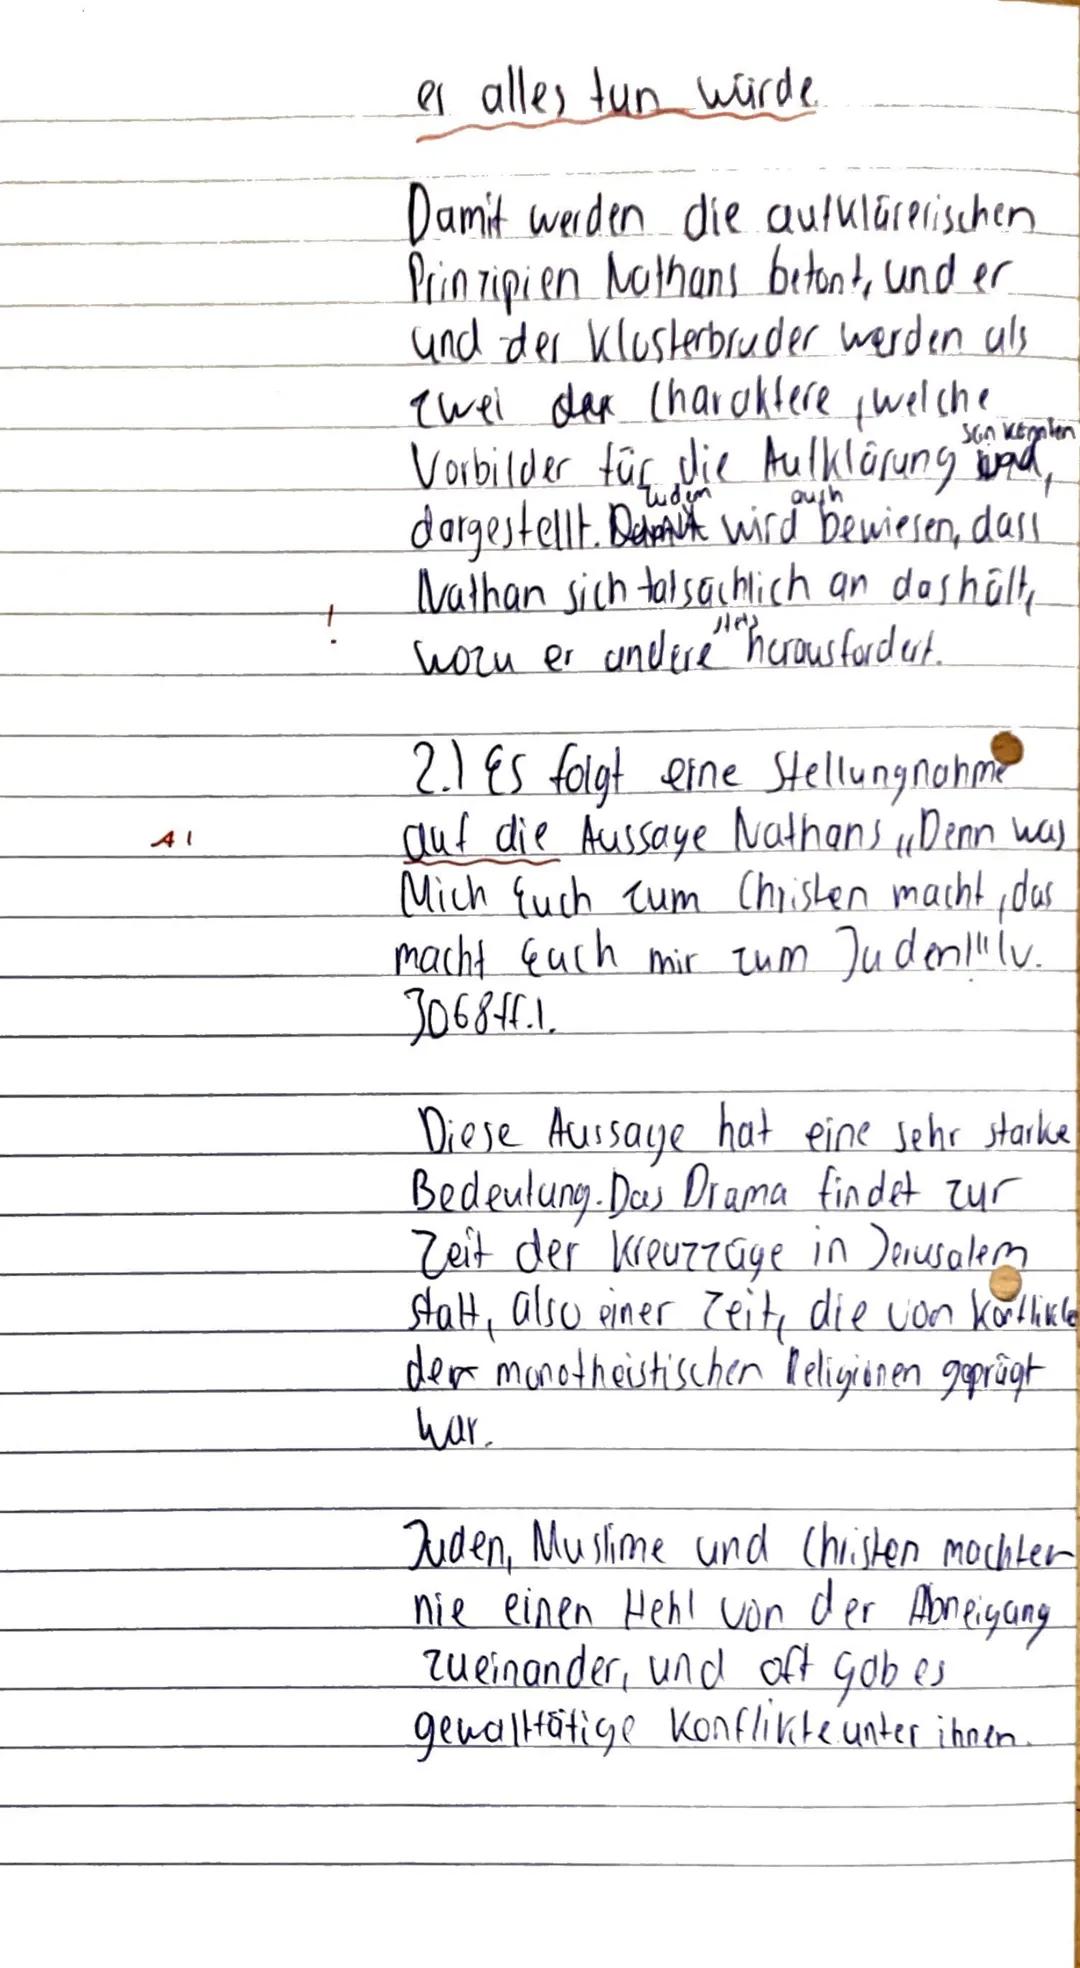 er alles tun würde.
Damit werden die aufklärerischen
Prinzipien Nathans betont, und er
und der Klosterbruder werden als
zwei der Charaktere, welche
sein könnten
Vorbilder für die Aufklärung
zudem auch
dargestellt. wird bewiesen, dass
Nathan sich tatsächlich an das hält,
! stets
wozu er andere herausfordert.
2.) Es folgt eine Stellungnahme
A1 auf die Aussage Nathans „Denn was
Mich Euch zum Christen macht, das
macht Euch mir zum Juden!" (v.
3068ff.).
Diese Aussage hat eine sehr starke
Bedeutung. Das Drama findet zur
Zeit der Kreuzzüge in Jerusalem
statt, also einer Zeit, die von Konflikte
der monotheistischen Religionen geprägt
war.
Juden, Muslime und Christen machten
nie einen Hehl von der Abneigung
zueinander, und oft gab es
gewalttätige Konflikte unter ihnen.